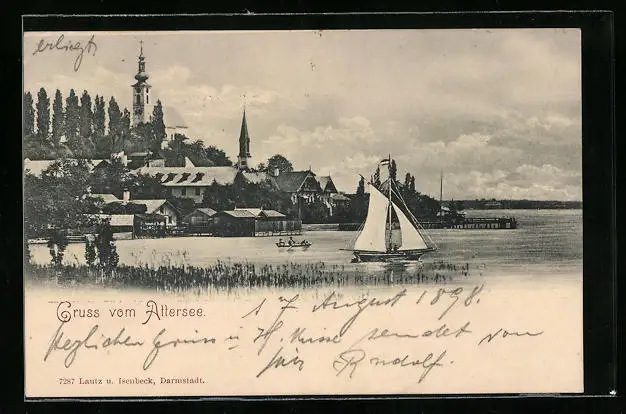 erliegt
Gruss vom Attersee.
17 August 1898.
Herzlichen Gruss u. H. Küsse sendet von
Rudolf.
7287 Lautz u. Isenbeck, Darmstadt.